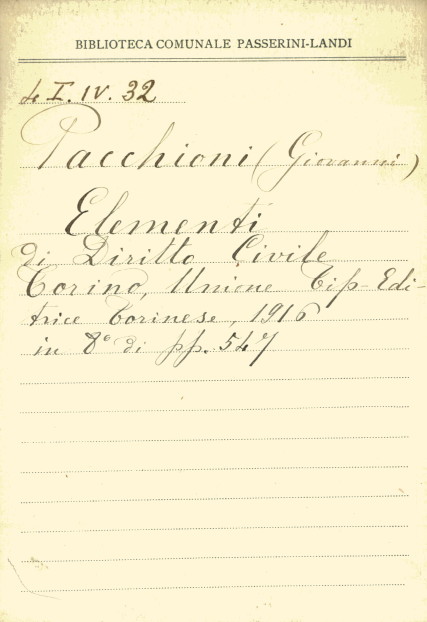 BIBLIOTECA COMUNALE PASSERINI-LANDI
I. IV. 32
Pacchioni (Giovanni)
Elementi
di Diritto Civile
Torino, Unione Tip-Edi-
trice Torinese, 1916
in 8° di pp. 547